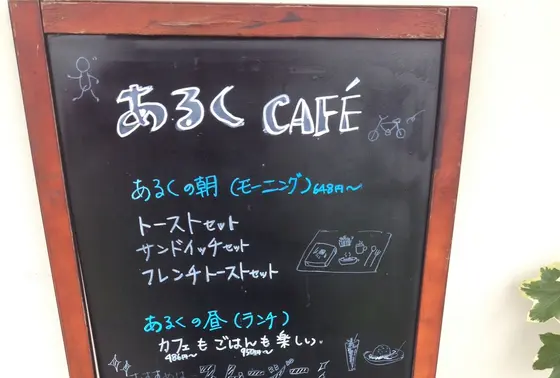 あるく CAFÉ
あるくの朝(モーニング)648円〜
トーストセット
サンドイッチセット
フレンチトーストセット
あるくの昼(ランチ)
カフェもごはんも楽しい。
486円〜 950円〜